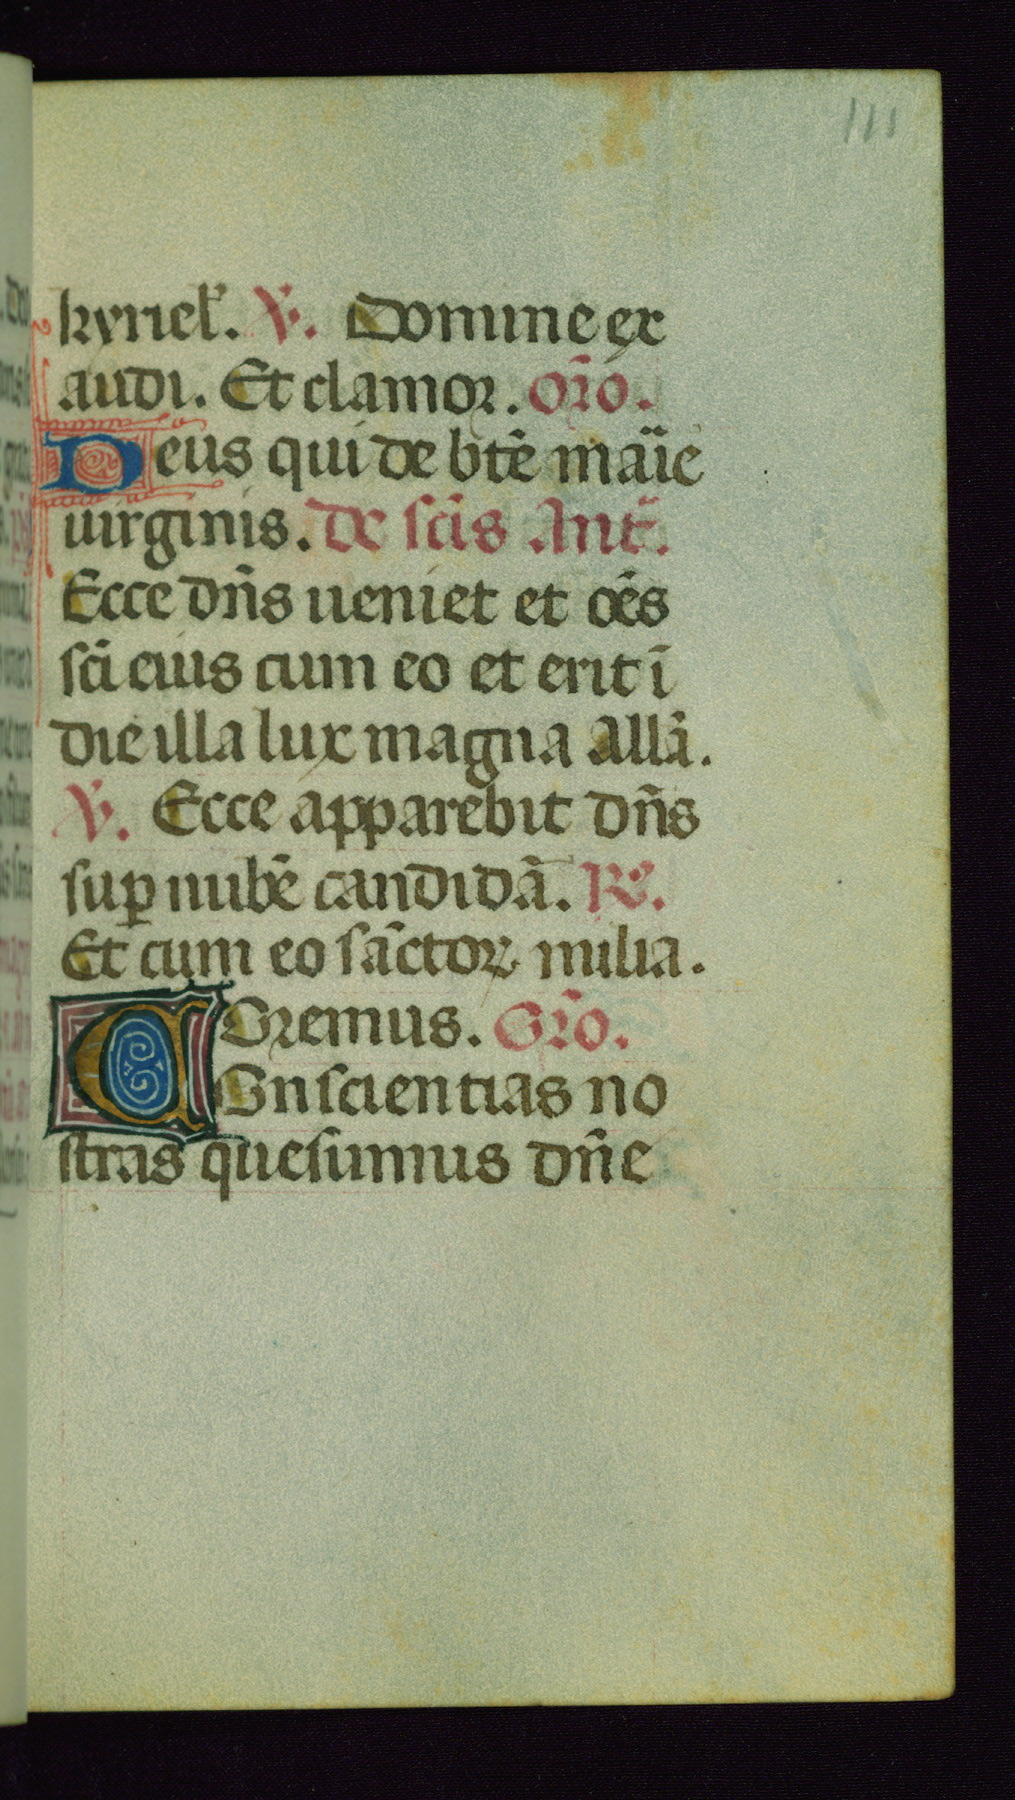 111
kyriel̄. V̄. Domine ex
audi. Et clamor. or̄o.
Deus qui de btē mar̄ie
uirginis. De sc̄is Ant̄.
Ecce dn̄s ueniet et oēs
sc̄i eius cum eo et erit ī
die illa lux magna Allā.
V̄. Ecce apparebit dn̄s
suꝑ nubē candidā. R̄e.
Et cum eo sāctoꝝ milia.
Oremus. Or̄o.
COnscientias no
stras quesumus dn̄e